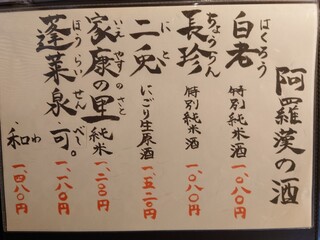 阿羅漢の酒
白老 はくろう 特別純米酒 一、〇八〇円
長珍 ちょうちん 特別純米酒 一、〇八〇円
二兎 にと にごり生原酒 一、五二〇円
家康の里 いえやすのさと 純米 一、二〇〇円
蓬莱泉 ほうらいせん 可。 べし。 一、一八〇円
、和 わ 一、四八〇円